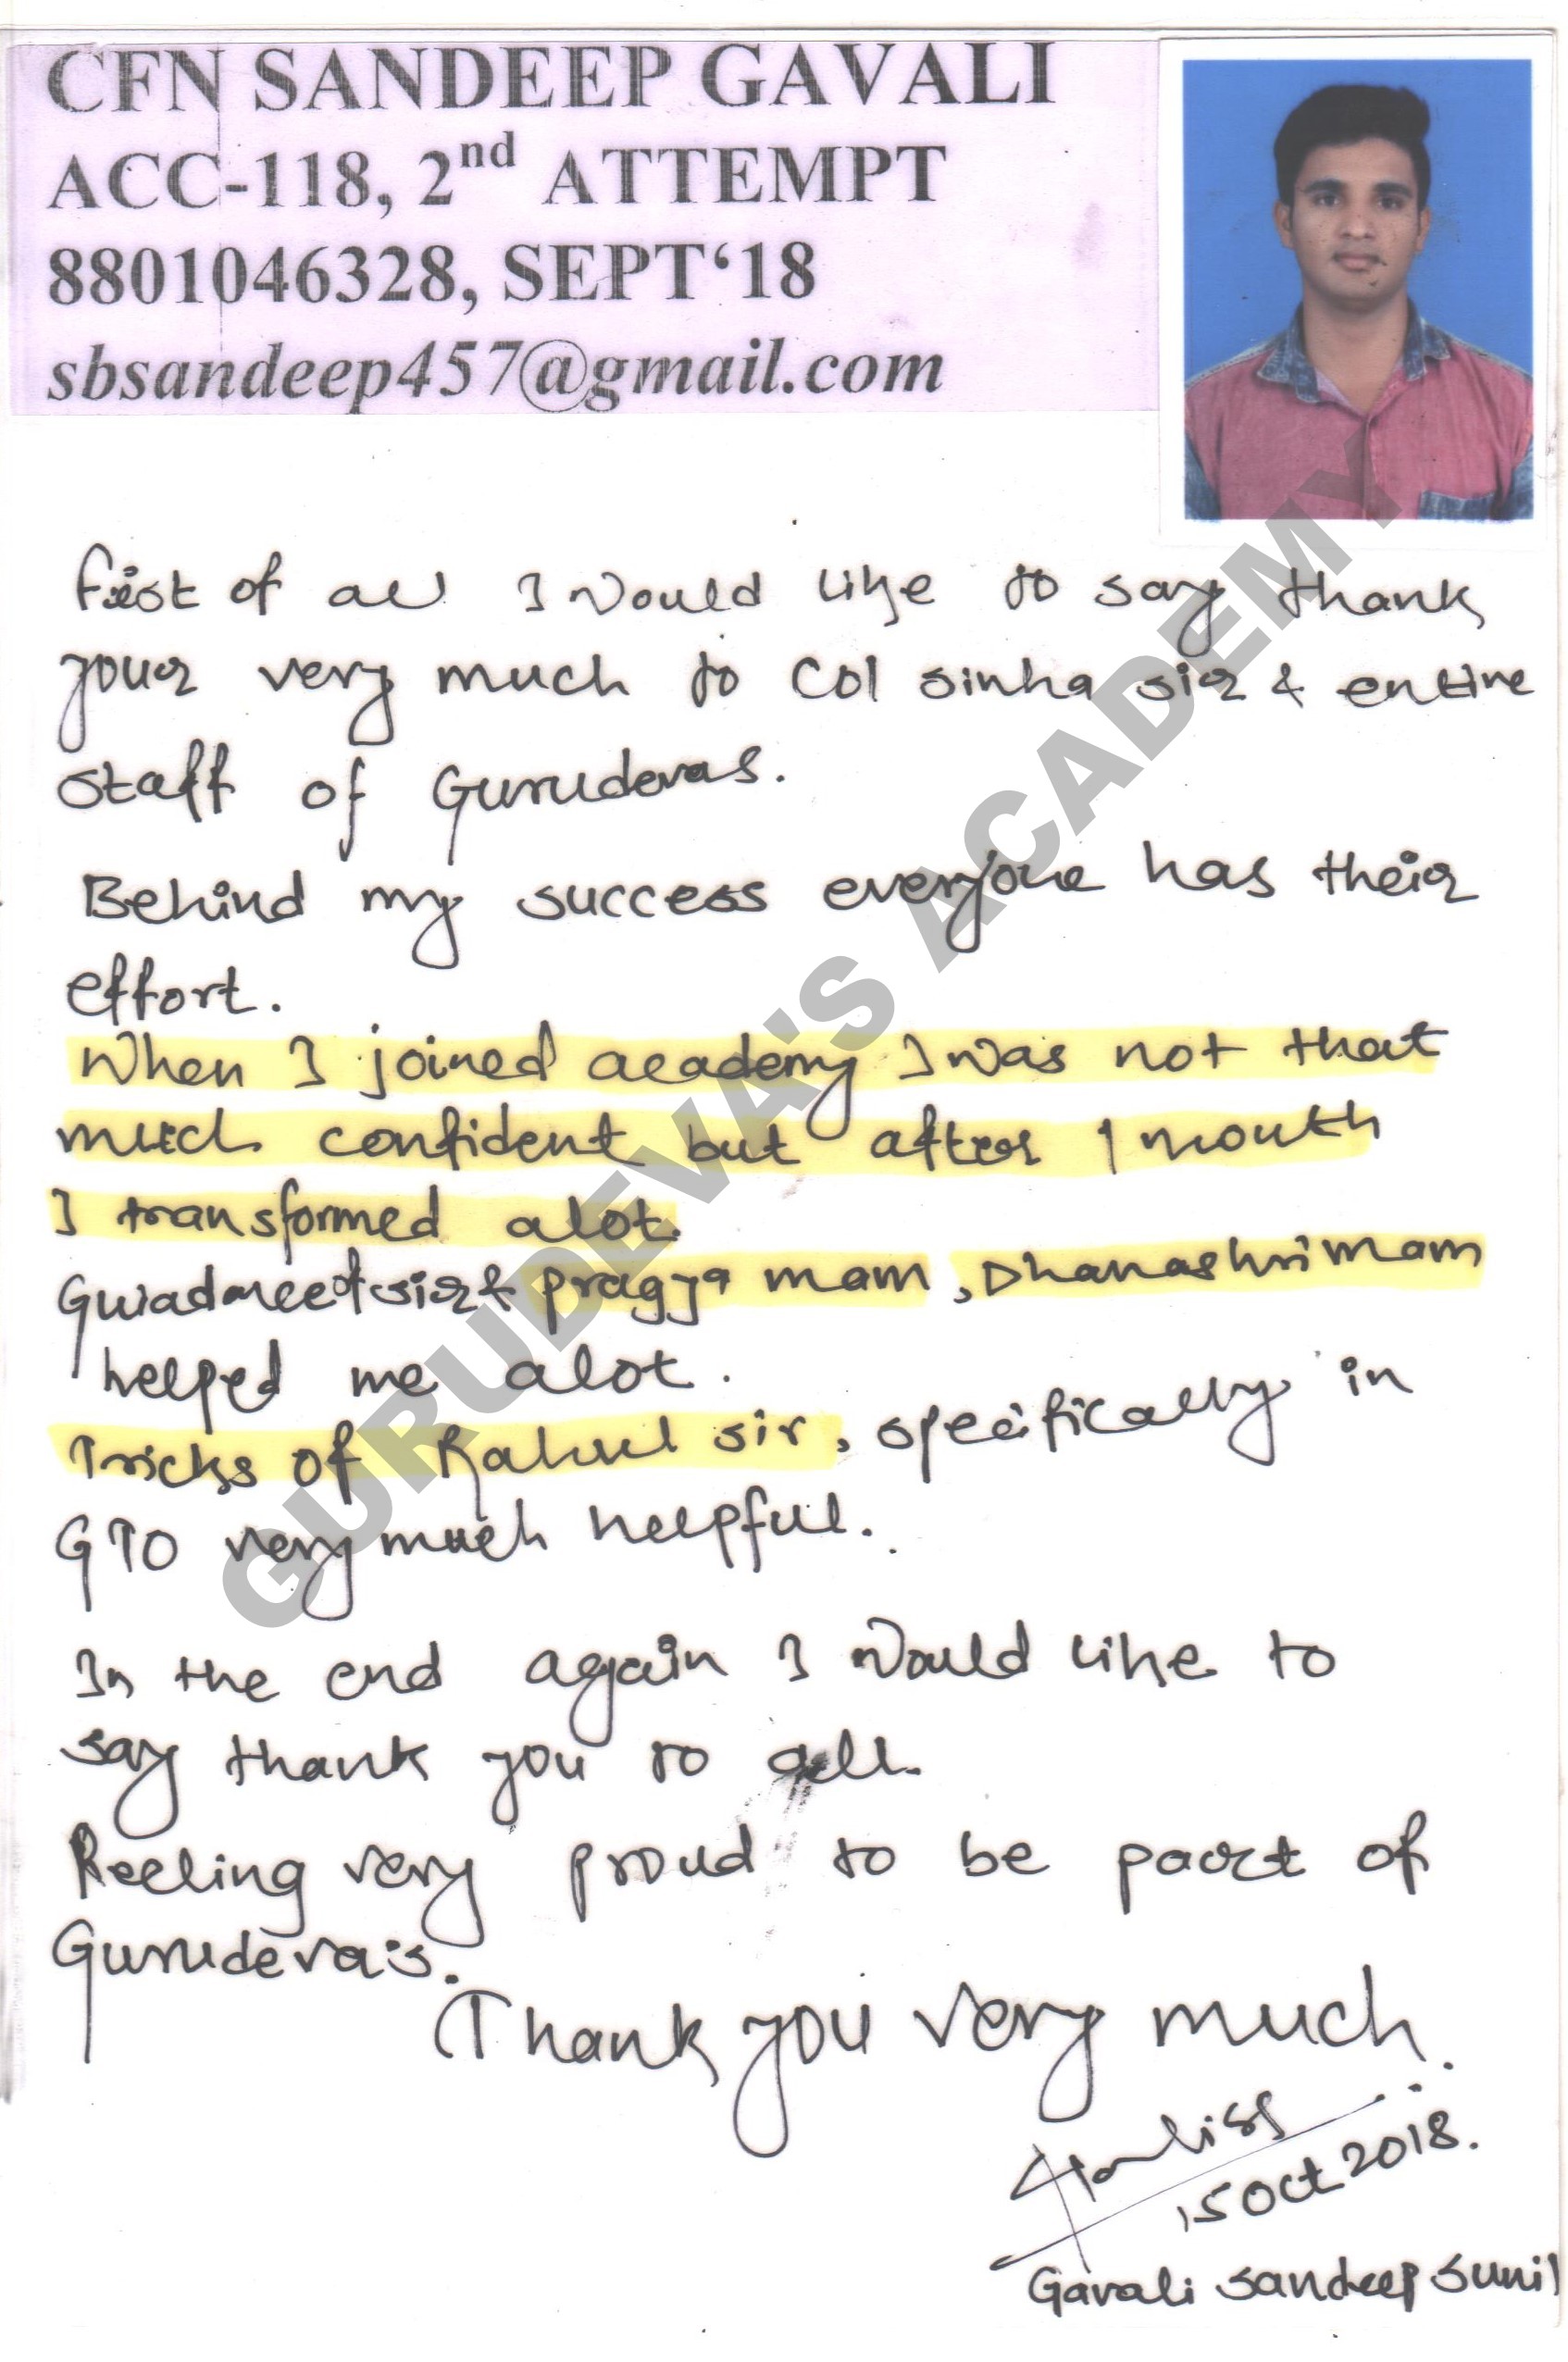 CFN SANDEEP GAVALI
ACC-118, 2nd ATTEMPT
8801046328, SEPT‘18
sbsandeep457@gmail.com
First of all I would like to say thank
your very much to Col sinha sir & entire
staff of Gurudevas.
Behind my success everyone has their
effort.
When I joined academy I was not that
much confident but after 1 month
I transformed alot.
sir & pragya mam, Dhanashri mam
helped me alot.
Tricks of Rahul sir, specifically in
GTO very much helpful.
In the end again I would like to
say thank you to all.
Feeling very proud to be part of
Gurudeva's.
Thank you very much.
15 Oct 2018.
Gavali Sandeep Sunil
GURUDEVA'S ACADEMY